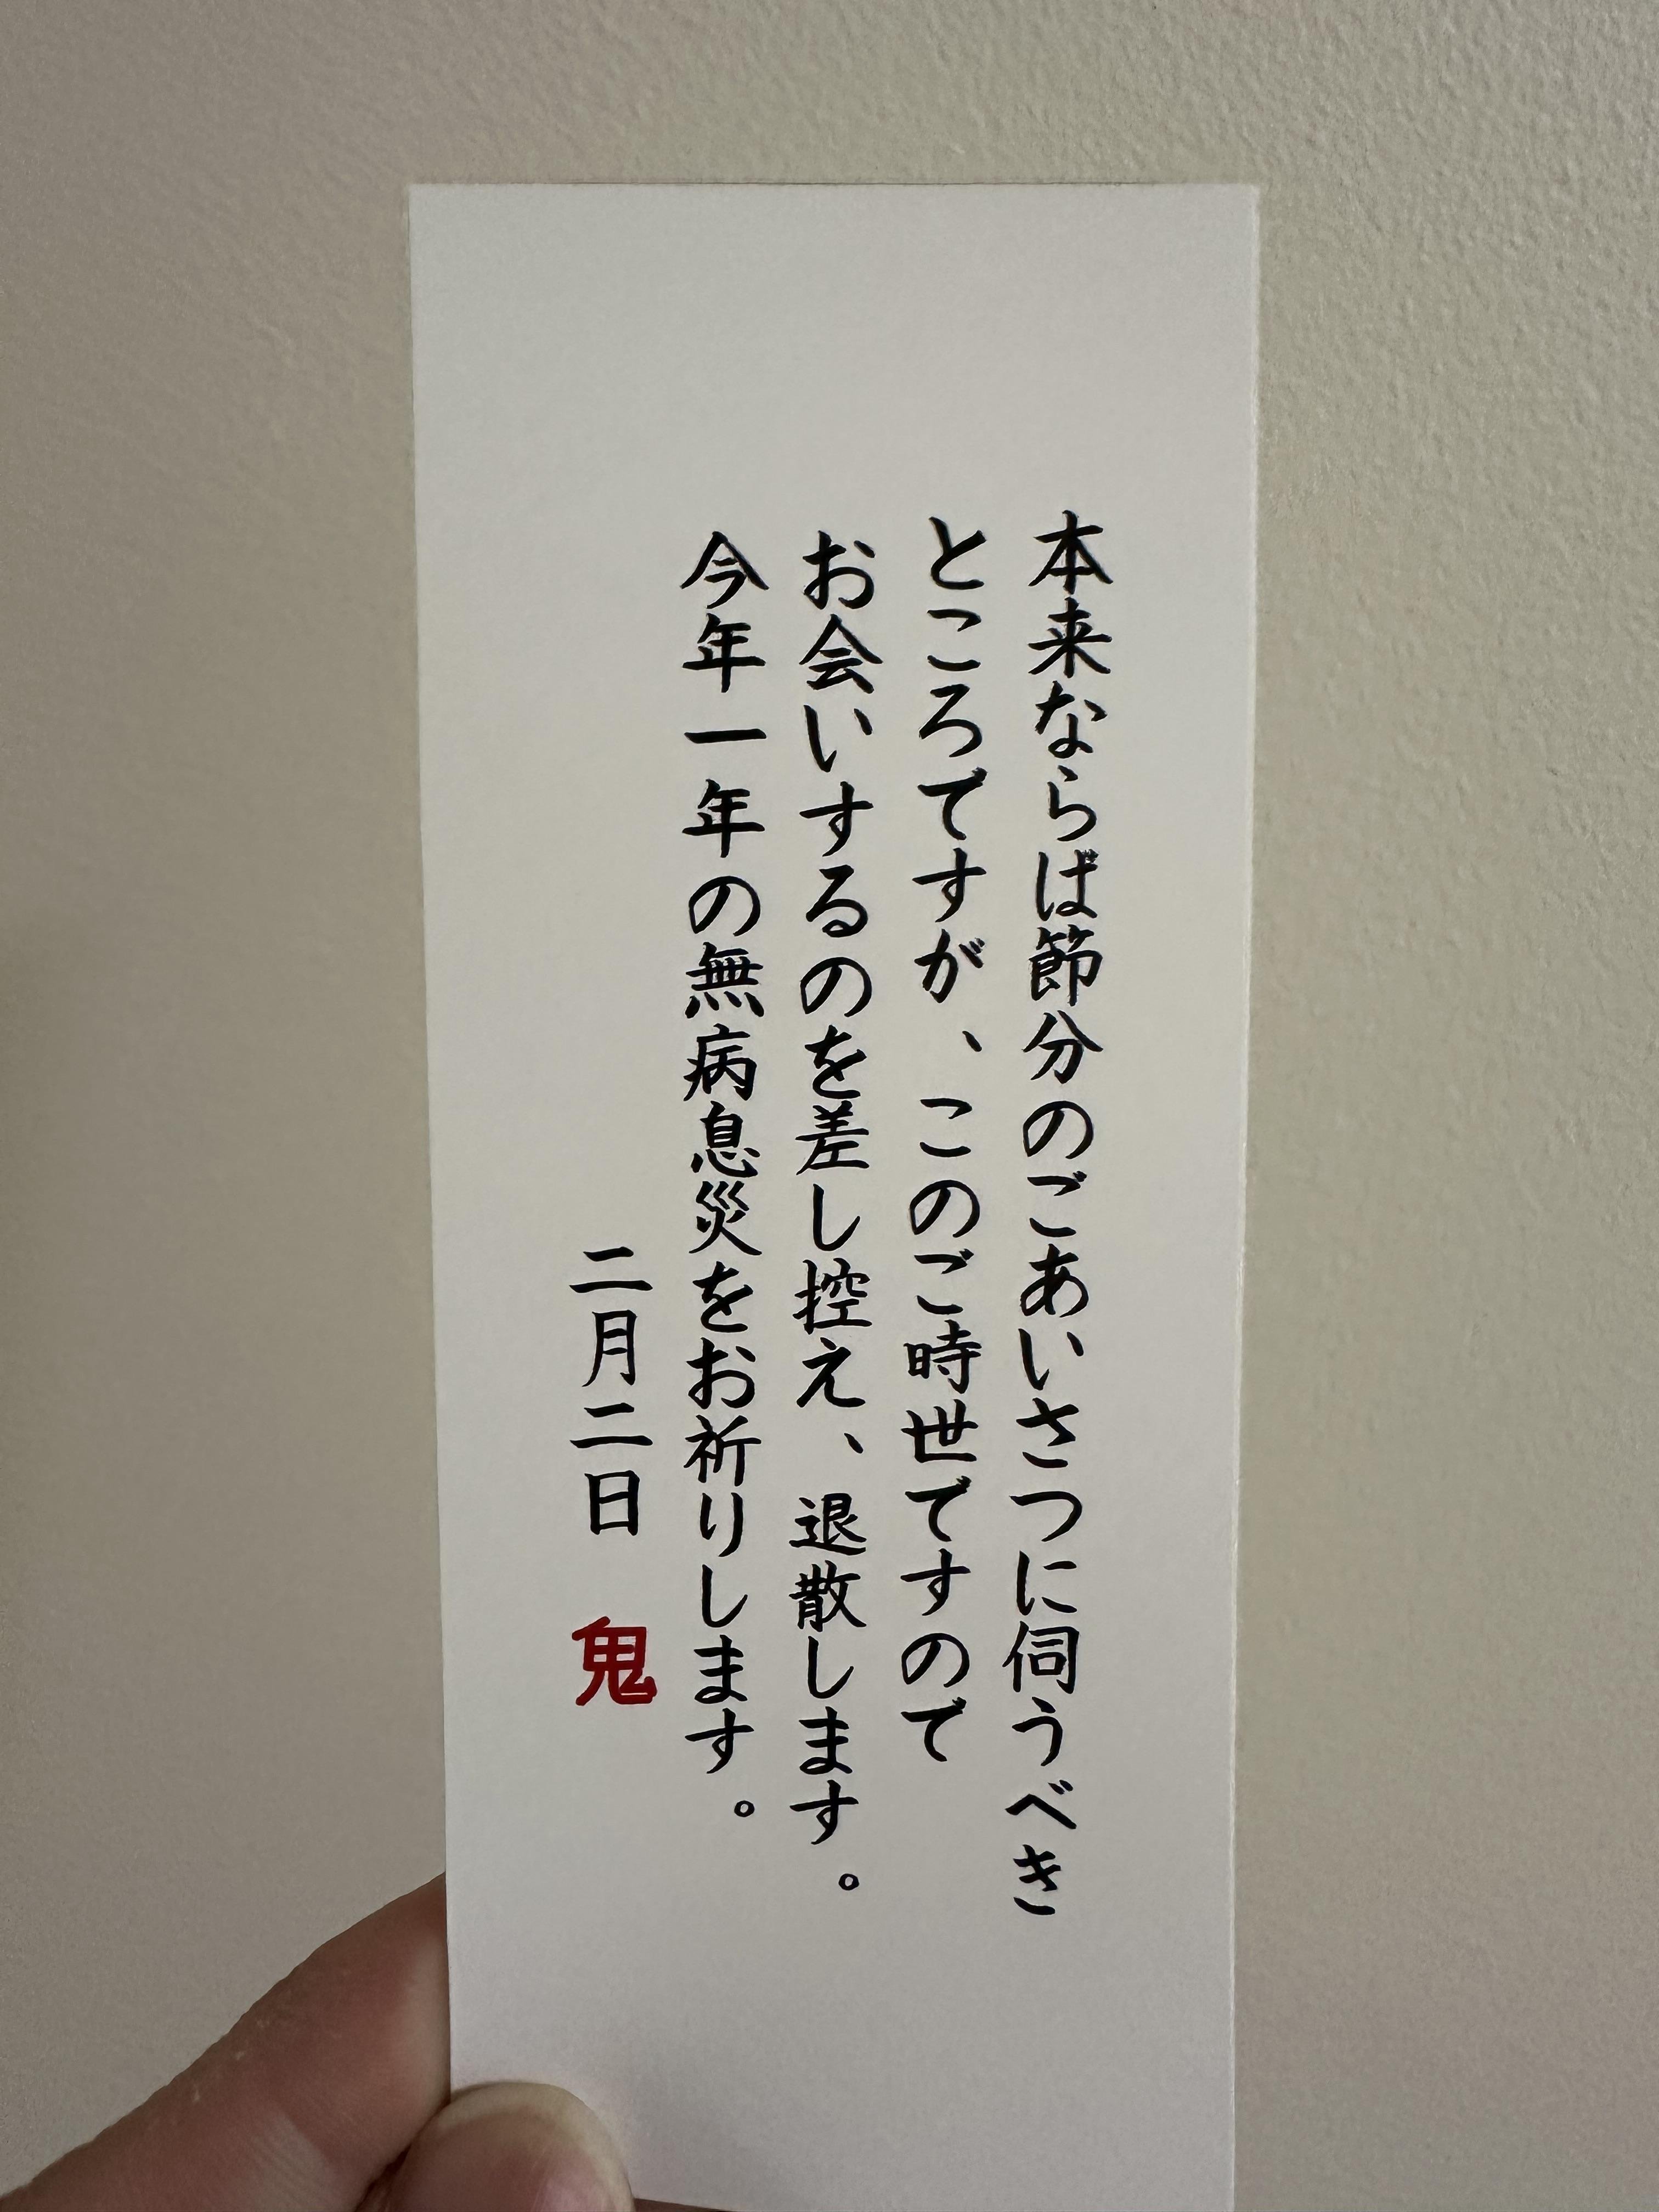 本来ならば節分のごあいさつに伺うべき
ところですが、このご時世ですので
お会いするのを差し控え、退散します。
今年一年の無病息災をお祈りします。
二月二日 鬼